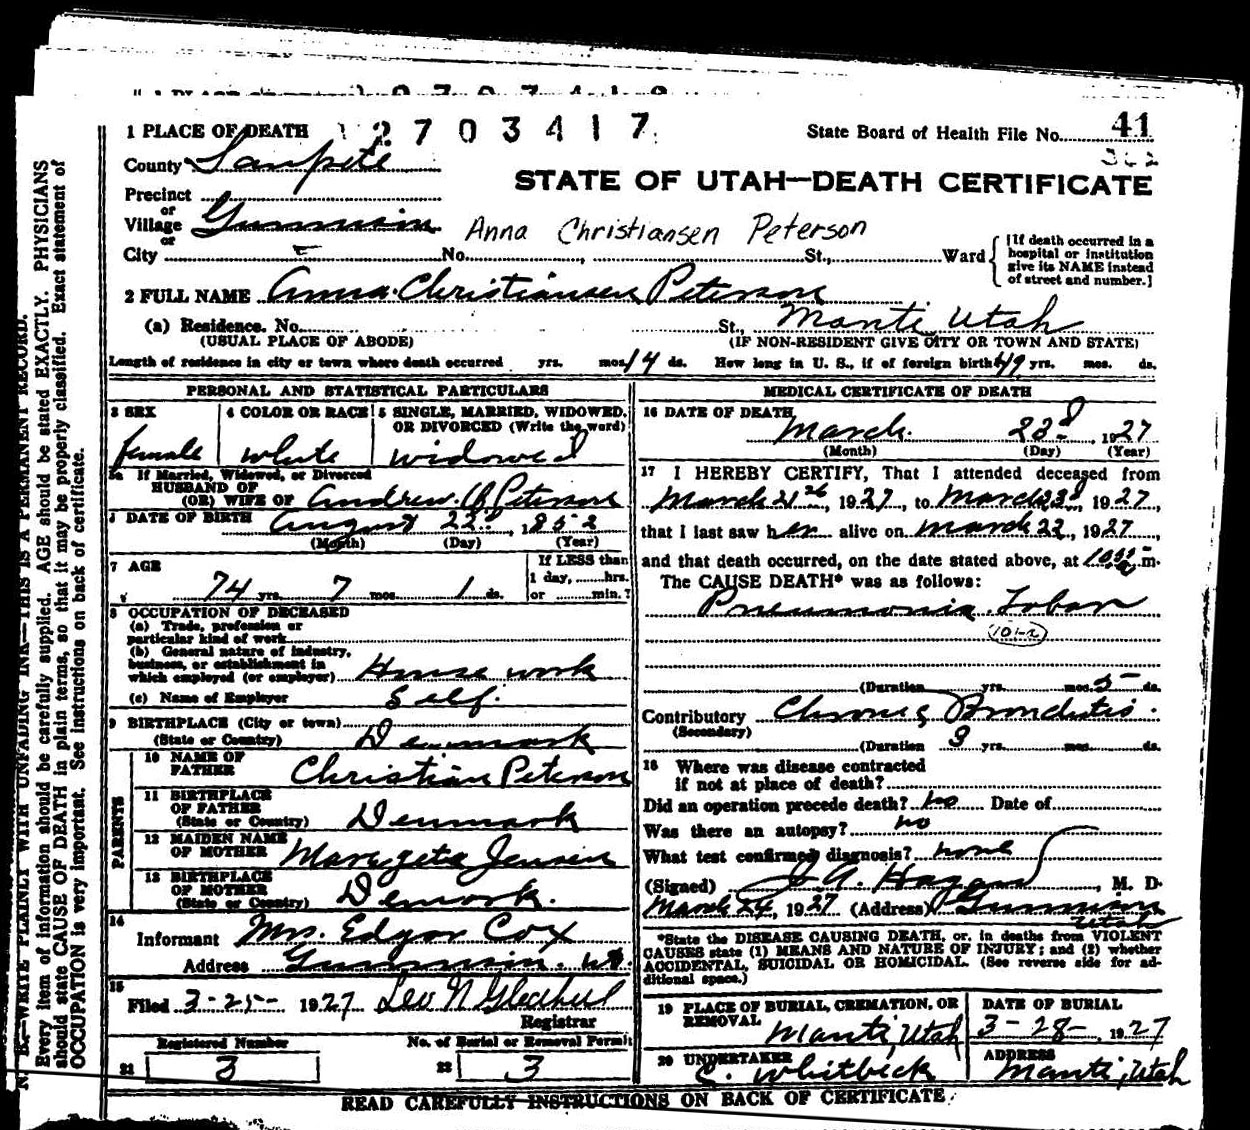 1 PLACE OF DEATH 2703417
State Board of Health File No. 41
County Sanpete
STATE OF UTAH—DEATH CERTIFICATE
Precinct
or
Village Gunnison
or
Anna Christiansen Peterson
City No. , St., Ward
[If death occurred in a hospital or institution give its NAME instead of street and number.]
2 FULL NAME Anna Christiansen Peterson
(a) Residence. No. St., Manti, Utah
(USUAL PLACE OF ABODE) (IF NON-RESIDENT GIVE CITY OR TOWN AND STATE)
Length of residence in city or town where death occurred yrs. mos. 14 ds. How long in U. S., if of foreign birth? 49 yrs. mos. ds.
PERSONAL AND STATISTICAL PARTICULARS
3 SEX 4 COLOR OR RACE 5 SINGLE, MARRIED, WIDOWED, OR DIVORCED (Write the word)
female white widowed
5a If Married, Widowed, or Divorced
HUSBAND OF
(OR) WIFE OF Andrew Peterson
DATE OF BIRTH August 22d, 1852
(Month) (Day) (Year)
7 AGE If LESS than
1 day, hrs.
74 yrs. 7 mos. 1 ds. or min.?
8 OCCUPATION OF DECEASED
(a) Trade, profession or
particular kind of work
(b) General nature of industry,
business, or establishment in
which employed (or employer) House work
(c) Name of Employer Self.
9 BIRTHPLACE (City or town)
(State or Country) Denmark
PARENTS
10 NAME OF FATHER Christian Peterson
11 BIRTHPLACE OF FATHER
(State or Country) Denmark
12 MAIDEN NAME OF MOTHER Margete Jensen
13 BIRTHPLACE OF MOTHER
(State or Country) Demark.
14
Informant Mrs. Edgar Cox
Address Gunnison. Ut.
15
Filed 3-25- 1927 Leo N Gledhill
Registrar
Registered Number No. of Burial or Removal Permit
21 3 22 3
MEDICAL CERTIFICATE OF DEATH
16 DATE OF DEATH
March 23d, 1927
(Month) (Day) (Year)
17 I HEREBY CERTIFY, That I attended deceased from
March 21st, 1927, to March 23d, 1927,
that I last saw her alive on March 22, 1927,
and that death occurred, on the date stated above, at m.
The CAUSE DEATH* was as follows:
Pneumonia Lobar
(Duration yrs. mos. 5 ds.
Contributory Chronic Bronchitis.
(Secondary)
(Duration 3 yrs. mos. ds.
18 Where was disease contracted
if not at place of death?
Did an operation precede death? no Date of
Was there an autopsy? no
What test confirmed diagnosis? none
(Signed) J A. Hagan, M. D.
March 24, 1927 (Address) Gunnison
Utah
*State the DISEASE CAUSING DEATH, or, in deaths from VIOLENT
CAUSES state (1) MEANS AND NATURE OF INJURY; and (2) whether
ACCIDENTAL, SUICIDAL OR HOMICIDAL. (See reverse side for ad-
ditional space.)
19 PLACE OF BURIAL, CREMATION, OR REMOVAL DATE OF BURIAL
Manti, Utah 3-28-, 1927
20 UNDERTAKER ADDRESS
C. Whitbeck Manti, Utah
READ CAREFULLY INSTRUCTIONS ON BACK OF CERTIFICATE
N. B.—WRITE PLAINLY WITH UNFADING INK—THIS IS A PERMANENT RECORD.
Every item of information should be carefully supplied. AGE should be stated EXACTLY. PHYSICIANS
should state CAUSE OF DEATH in plain terms, so that it may be properly classified. Exact statement of
OCCUPATION is very important. See instructions on back of certificate.